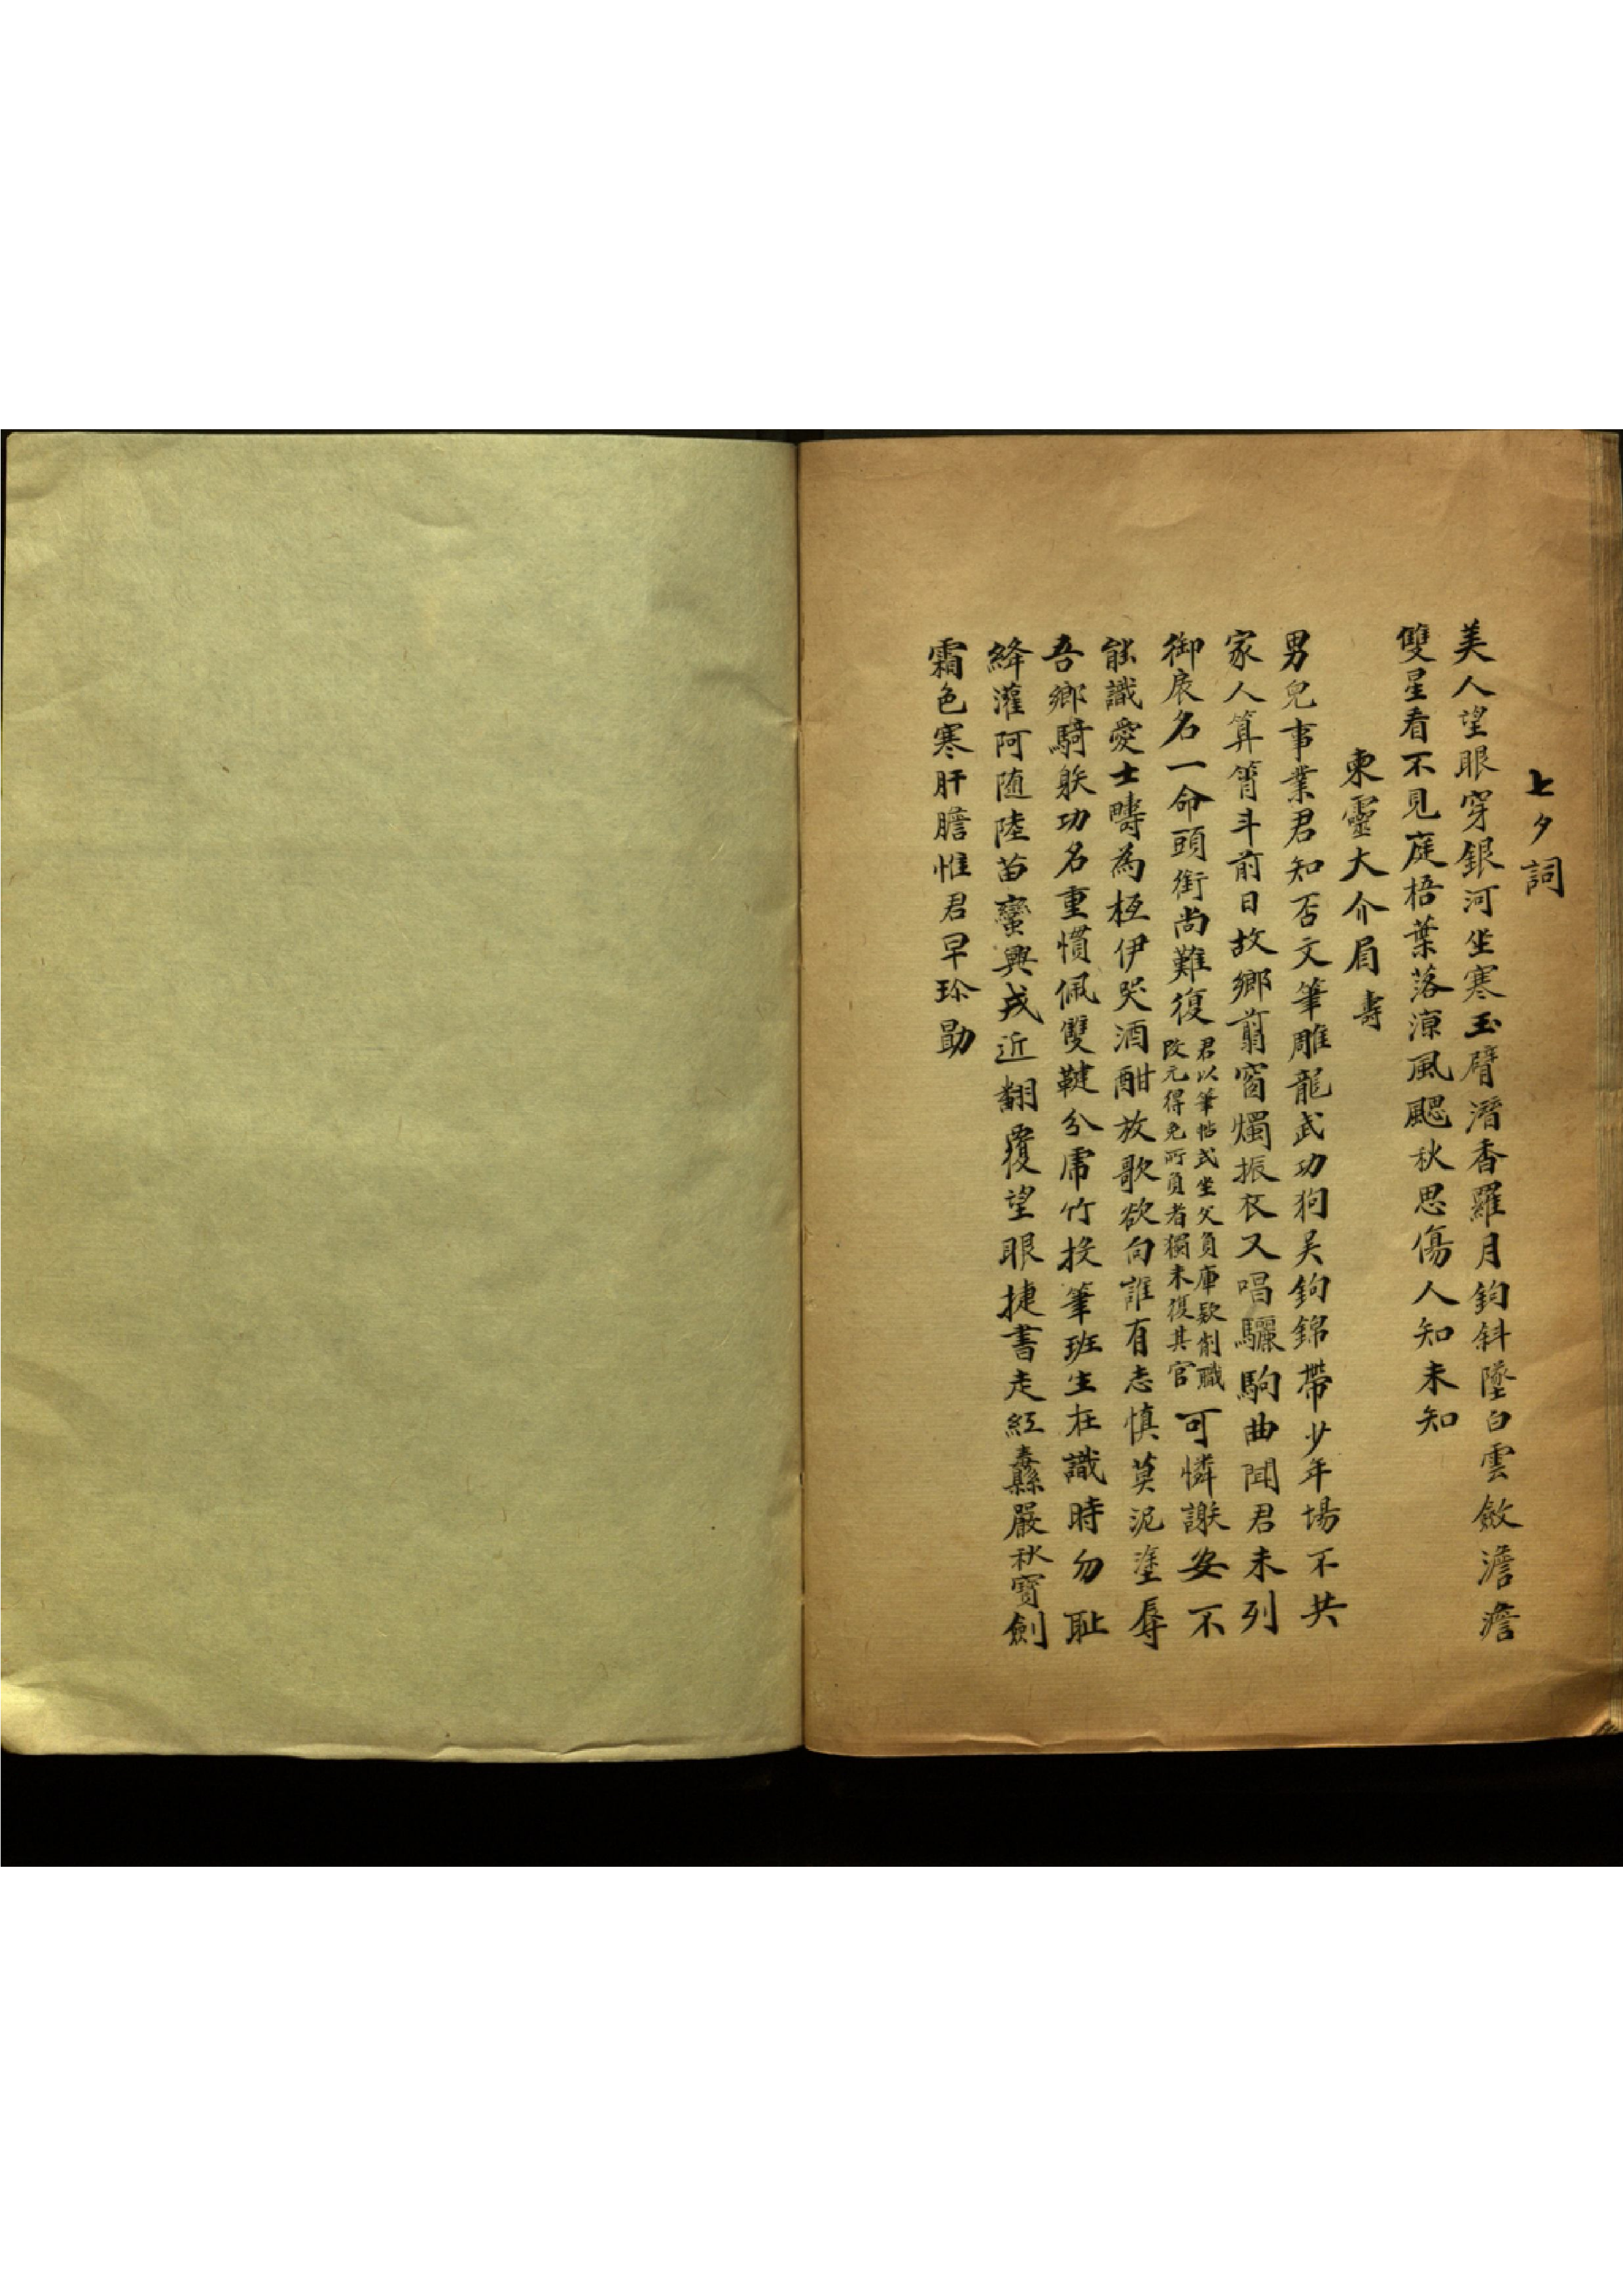 七夕詞
美人望眼穿銀河坐寒玉臂潛香羅月鉤斜墜白雲斂澹澹
雙星看不見庭梧葉落涼風颸秋思傷人知未知
東靈大介眉壽
男兒事業君知否文筆雕龍武功狗吴鉤錦帶少年場不共
家人算筲斗前日故鄉翦窗燭振衣又唱驪駒曲聞君未列
御屏名一命頭銜尚難復君以筆帖式坐父負庫欵削職改元得免所負者獨未復其官可憐謝安不
能識愛士疇為桓伊哭酒酣放歌欲向誰有志慎莫泥塗辱
吾鄉騎射功名重慣佩雙鞬分虎竹投筆班生在識時勿恥
絳灌阿随陸苗蠻興戎近翻覆望眼捷書走紅纛嚴秋寶劍
霜色寒肝膽惟君早珍勖